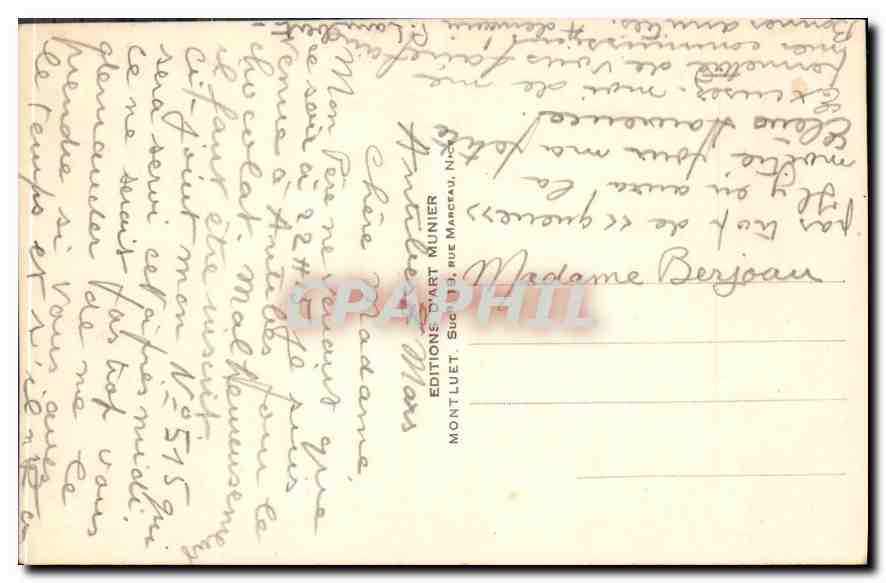 Antibes 8 Mars
Chère Madame,
Mon Père ne venant que
ce soir à 22H15 je suis
venue à Antibes pour le
chocolat. Malheureusement
il faut être inscrit
ci-joint mon N° 515 qui
sera servi cet après midi.
Ce ne serait pas trop vous
demander de me le
prendre si vous avez
le temps et s'il n'y a
pas trop de « queue »
Il y en aura la
moitié pour ma petite
Excusez-moi de me
permettre de vous faire
mes commissions! A demain
Bonnes amitiés.
Madame Berjoau
EDITIONS D'ART MUNIER
MONTLUET. Succr 19, RUE MARCEAU, NICE
CPARPHIL